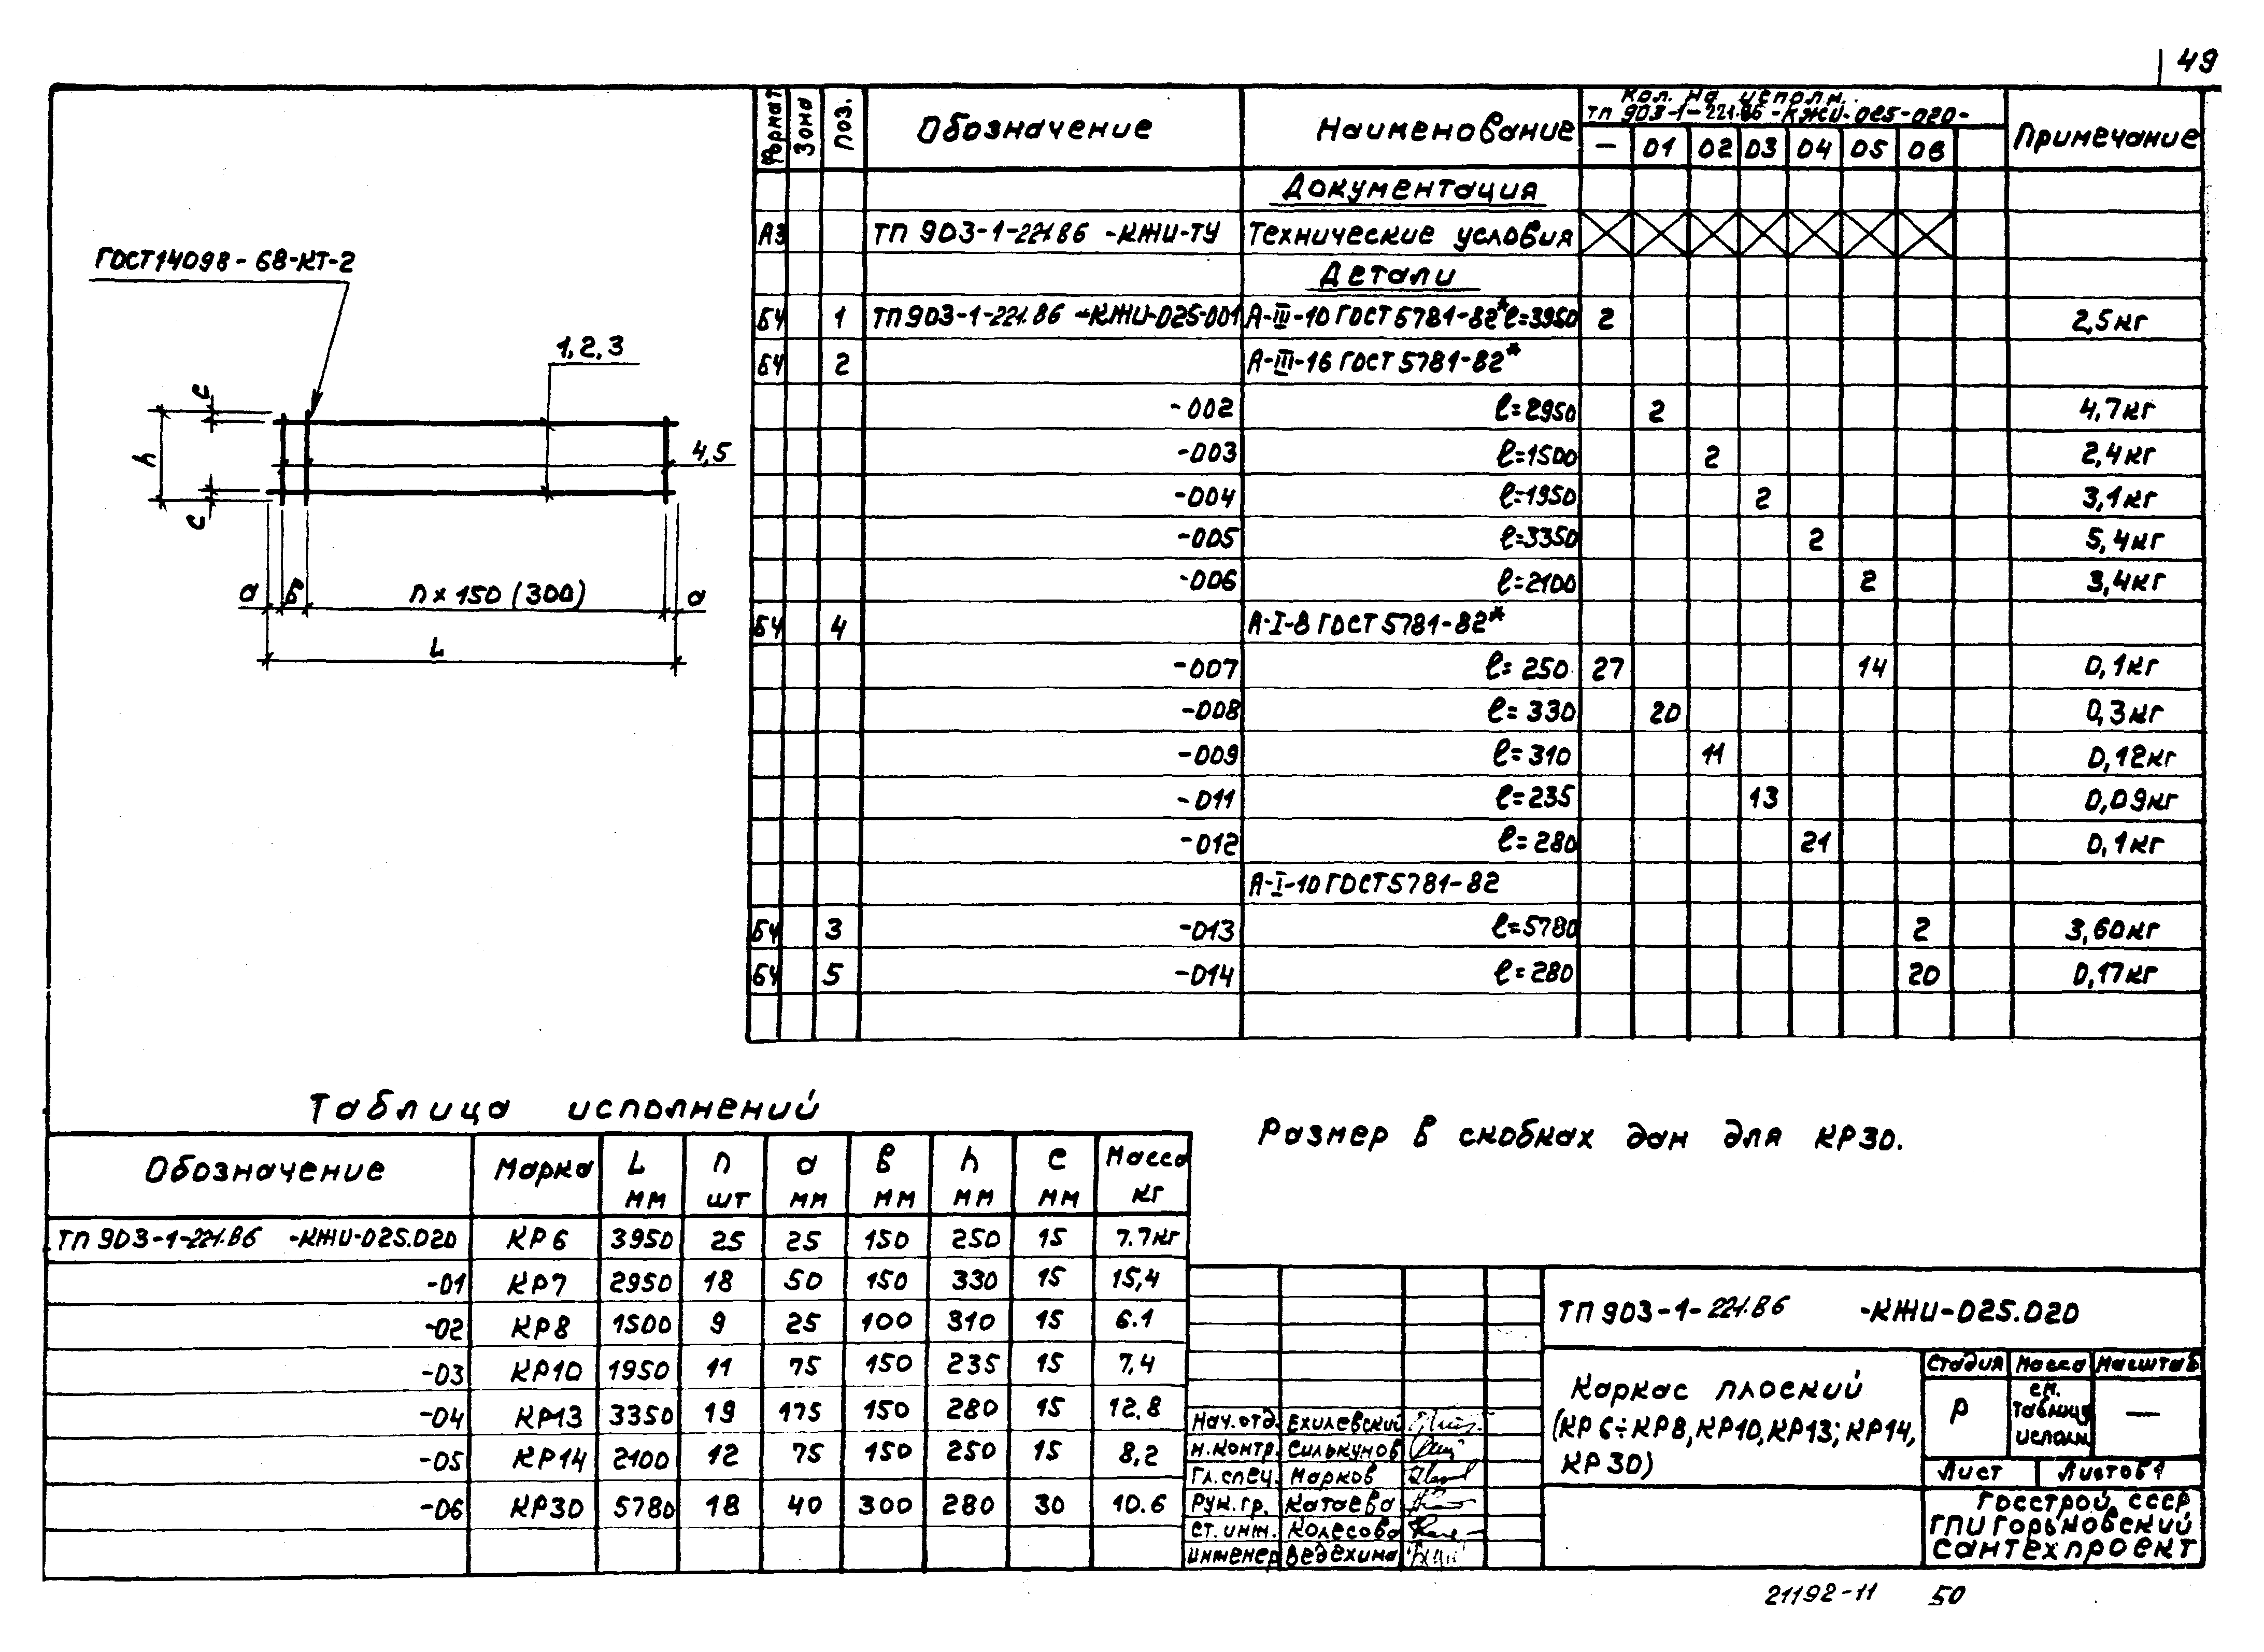 49
ГОСТ14098-68-КТ-2
1,2,3
c
h
4,5
c
а б n×150 (300) а
L
Формат Зона Поз. Обозначение Наименование Кол. на исполн. ТП 903-1-221.86 -КЖИ-025-020- Примечание
— 01 02 03 04 05 06
Документация
А3 ТП 903-1-221.86 -КЖИ-ТУ Технические условия
Детали
БЧ 1 ТП 903-1-221.86 -КЖИ-025-001 А-III-10 ГОСТ 5781-82* ℓ=3950 2 2,5кг
БЧ 2 А-III-16 ГОСТ 5781-82*
-002 ℓ=2950 2 4,7кг
-003 ℓ=1500 2 2,4кг
-004 ℓ=1950 2 3,1кг
-005 ℓ=3350 2 5,4кг
-006 ℓ=2100 2 3,4кг
БЧ 4 А-I-8 ГОСТ 5781-82*
-007 ℓ=250 27 14 0,1кг
-008 ℓ=330 20 0,3кг
-009 ℓ=310 11 0,12кг
-011 ℓ=235 13 0,09кг
-012 ℓ=280 21 0,1кг
А-I-10 ГОСТ 5781-82
БЧ 3 -013 ℓ=5780 2 3,60кг
БЧ 5 -014 ℓ=280 20 0,17кг
Таблица исполнений
Обозначение Марка L мм n шт а мм в мм h мм c мм Масса кг
ТП 903-1-221.86 -КЖИ-025.020 КР6 3950 25 25 150 250 15 7.7кг
-01 КР7 2950 18 50 150 330 15 15,4
-02 КР8 1500 9 25 100 310 15 6.1
-03 КР10 1950 11 75 150 235 15 7,4
-04 КР13 3350 19 175 150 280 15 12.8
-05 КР14 2100 12 75 150 250 15 8,2
-06 КР30 5780 18 40 300 280 30 10.6
Размер в скобках дан для КР30.
ТП 903-1-221.86 -КЖИ-025.020
Каркас плоский
(КР6÷КР8, КР10, КР13; КР14,
КР30)
Стадия Масса Масштаб
Р см. таблицу исполн. —
Лист Листов 1
Госстрой СССР
ГПИ Горьковский
Сантехпроект
Нач.отд. Ехилевский
Н.контр. Силькунов
Гл.спец. Марков
Рук.гр. Катаева
Ст.инж. Колесова
Инженер Ведехина
21192-11 50